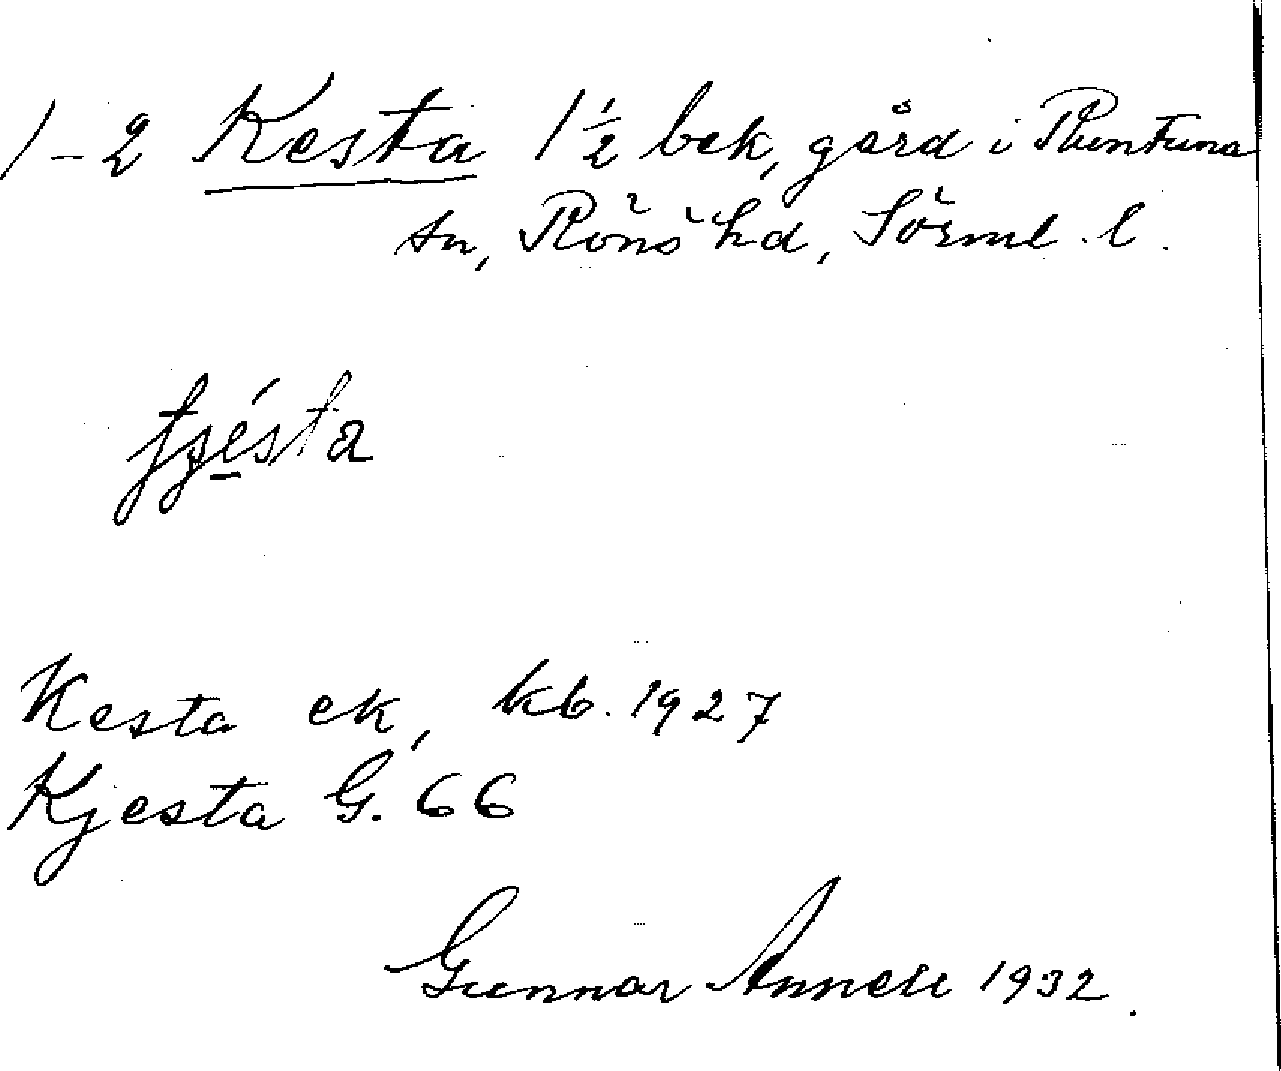 1-2 Kesta 1 1/2 bek, gård i Runtuna
sn, Rönö hd, Sörml. l.
tjésta
Kesta ek, kb. 1927
Kjesta G. 66
Gunnar Annell 1932.